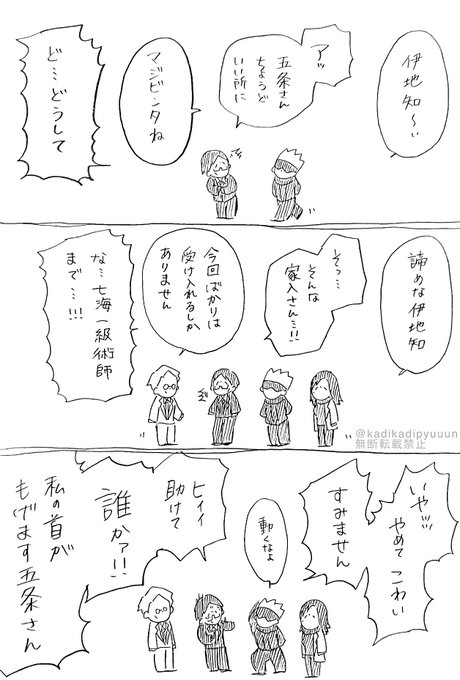 伊地知〜い
アッ
五条さん
ちょうど
いい所に
マジビンタね
ど…どうして
諦めな伊地知
そっ…
そんな
家入さん…!!
今回ばかりは
受け入れるしか
ありません
な…七海一級術師
まで…!!!
@kadikadipyuuun
無断転載禁止
いやッッ
やめて こわい
すみません
動くなよ
ヒィィ
助けて
誰かァ!!
私の首が
もげます五条さん